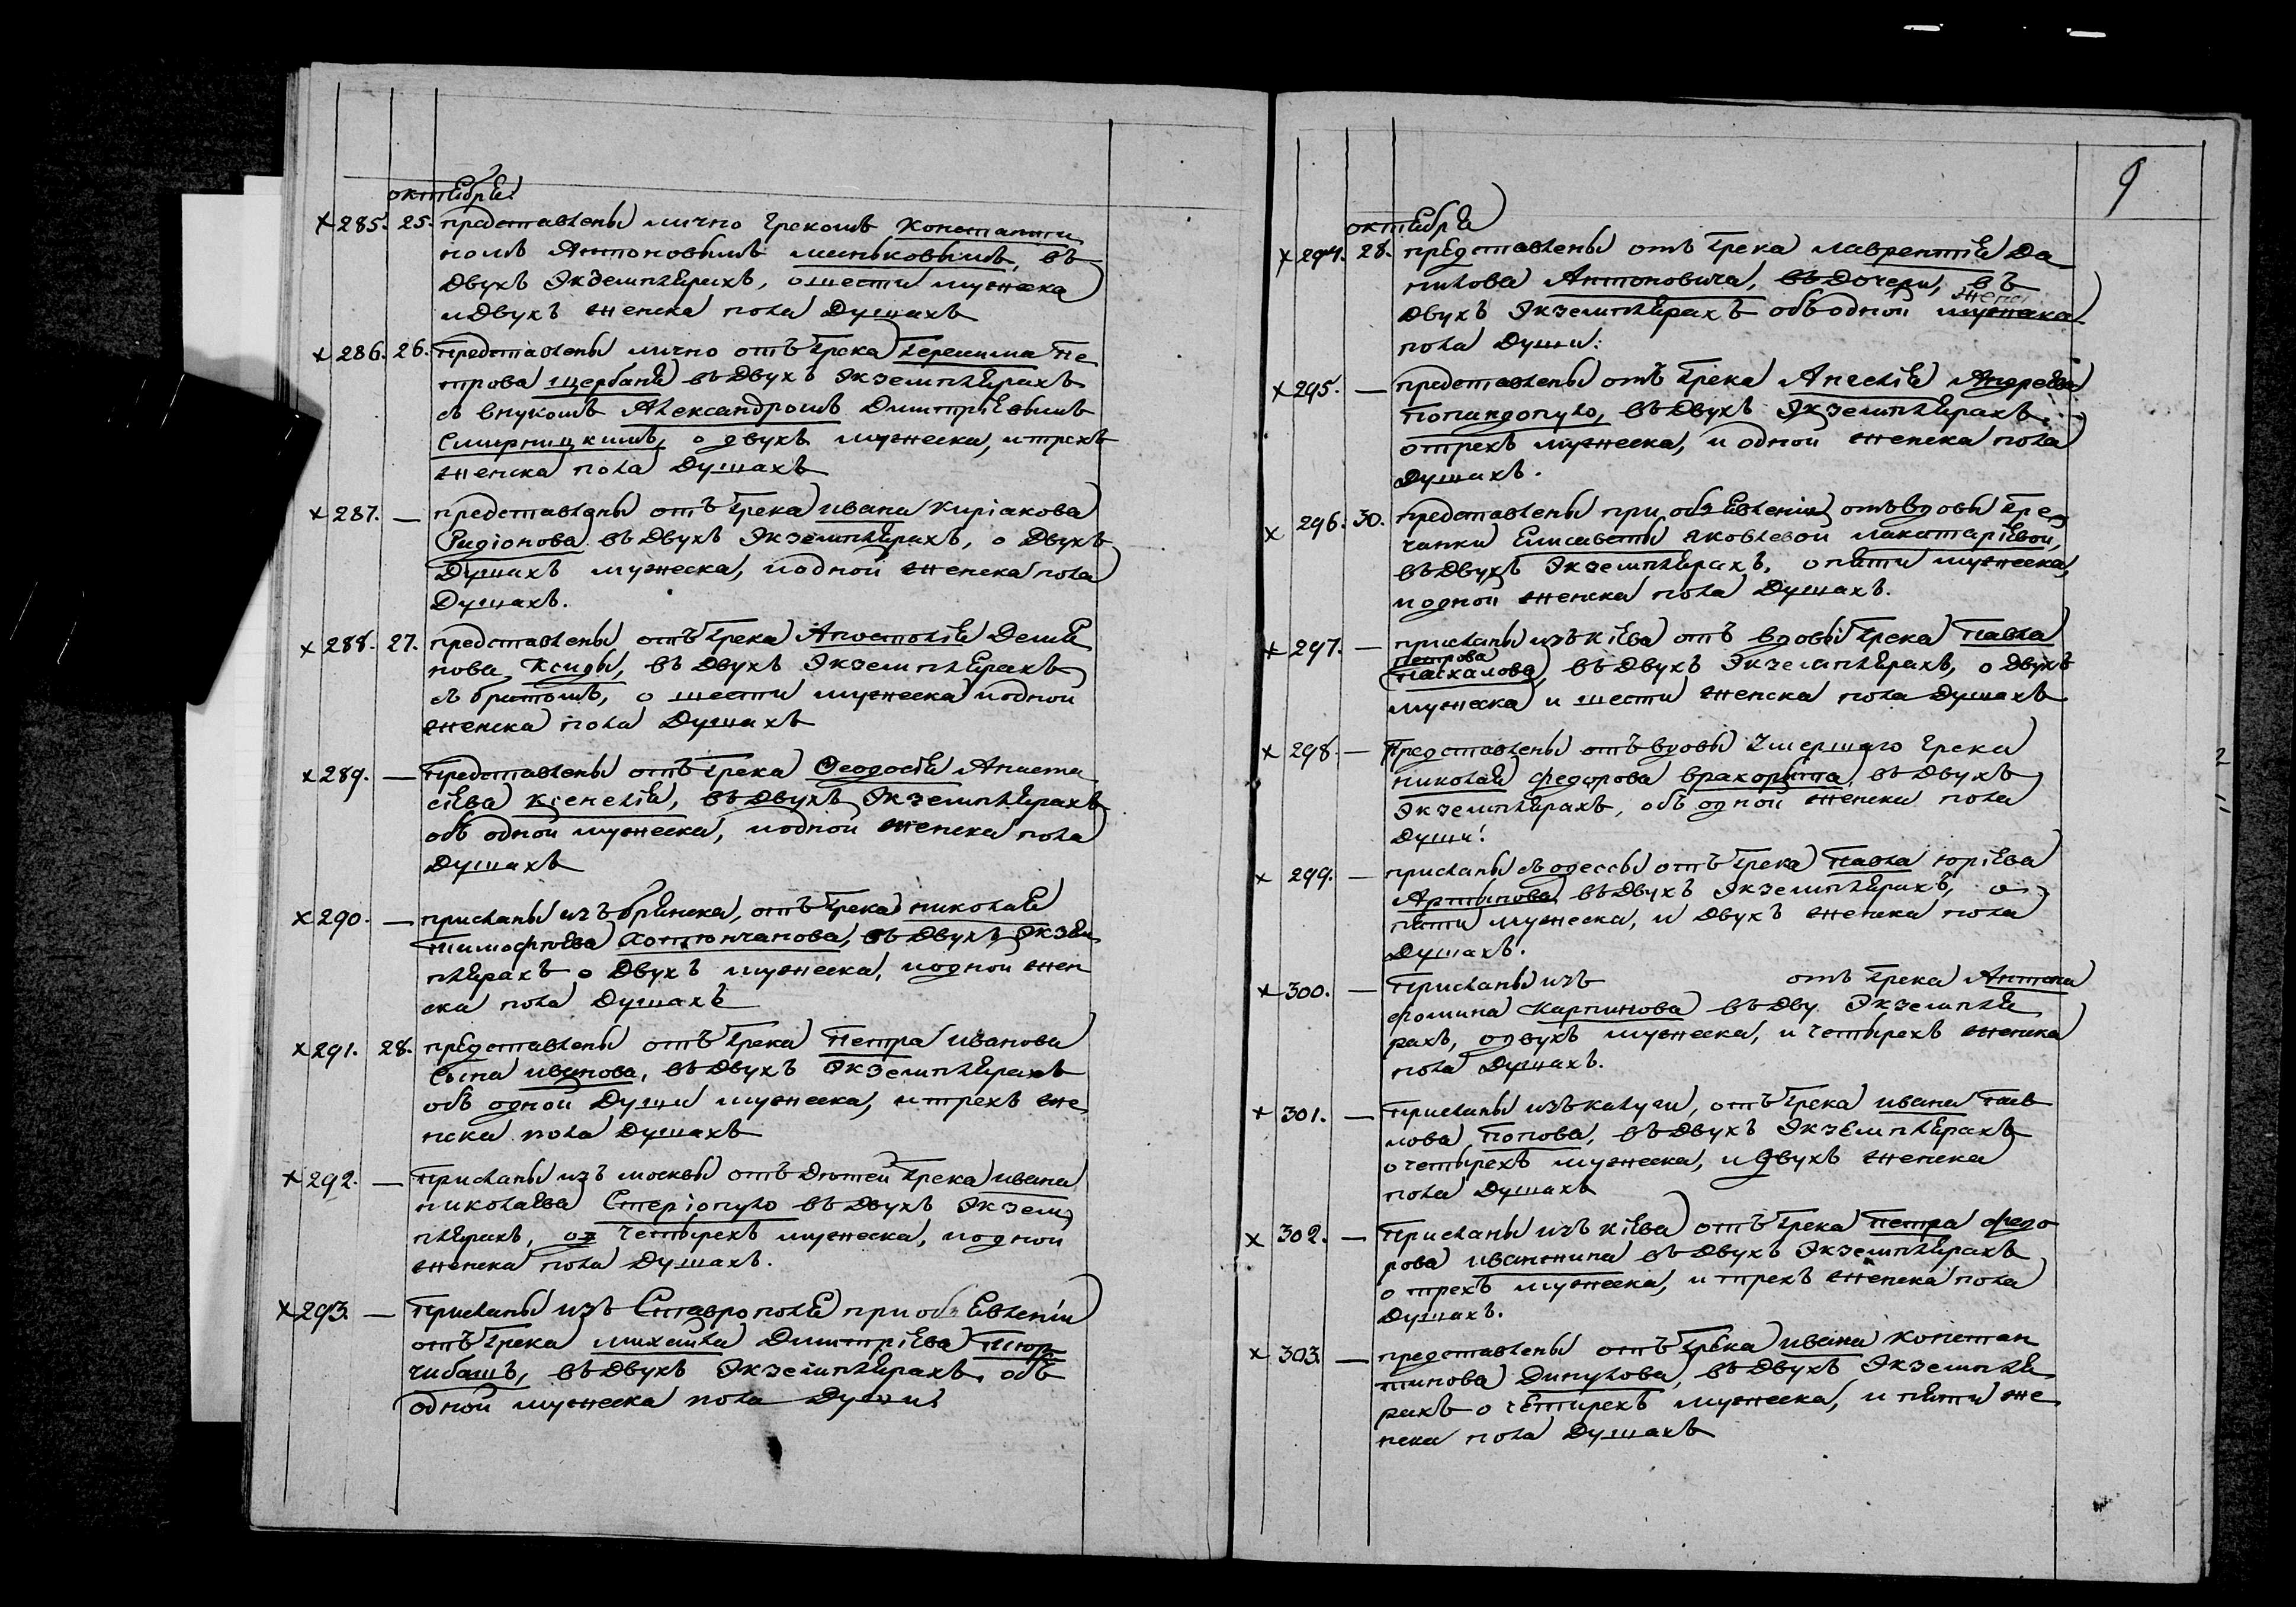 октября
×285. 25. представлены лично грекомъ Константи
номъ Антоновымъ Миньковымъ, въ
двухъ экземплярахъ, о шести мужеска
и двухъ женска пола душахъ
×286. 26. представлены лично отъ грека Герасима Пе
трова Щербаня въ двухъ экземплярахъ
съ внукомъ Александромъ Дмитріевымъ
Смирницкимъ, о двухъ мужеска, и трехъ
женска пола душахъ
×287. — представлены отъ грека Ивана Киріакова
Радіонова въ двухъ экземплярахъ, о двухъ
душахъ мужеска, и одной женска пола
душахъ.
×288. 27. представлены отъ грека Апостолія Демья
нова Ксиды, въ двухъ экземплярахъ
съ братомъ, о шести мужеска и одной
женска пола душахъ
×289. — представлены отъ грека Феодосія Анаста
сіева Ксенелія, въ двухъ экземплярахъ
объ одной мужеска, и одной женска пола
душахъ
×290. — присланы изъ Брянска, отъ грека Николая
Тимофѣева Хотюнчанова, въ двухъ экзем
плярахъ о двухъ мужеска, и одной жен
ска пола душахъ
×291. 28. представлены отъ грека Петра Иванова
сына Иванова, въ двухъ экземплярахъ
объ одной души мужеска, и трехъ же
нска пола душахъ
×292. — присланы изъ Москвы отъ дѣтей грека Ивана
Николаева Стеріопуло въ двухъ экзем
плярахъ, о четырехъ мужеска, и одной
женска пола душахъ.
×293. — присланы изъ Ставрополя при объявленіи
отъ грека Михайла Дмитріева Тюр
чибашъ, въ двухъ экземплярахъ, объ
одной мужеска пола души
9
октября
×294. 28. представлены отъ грека Лаврентія Да
нилова Антоновича, въ дочери, въ
двухъ экземплярахъ объ одной мужеска
жено
пола души.
×295. — представлены отъ грека Ангелія Андреева
Попандопуло, въ двухъ экземплярахъ
о трехъ мужеска, и одной женска пола
душахъ.
×296. 30. представлены при объявленіи отъ вдовы гре
чанки Елисаветы Яковлевой Макатаріевой,
въ двухъ экземплярахъ, о пяти мужеска,
и одной женска пола душахъ.
×297. — присланы изъ Кіева отъ вдовы грека Павла
Петрова
Пасхалова, въ двухъ экземплярахъ, о двухъ
мужеска и шести женска пола душахъ
×298. — представлены отъ вдовы умершаго грека
Николая Федорова Врахорыта, въ двухъ
экземплярахъ, объ одной женска пола
души.
×299. — присланы съ Одессы отъ грека Павла Юріева
Артынова, въ двухъ экземплярахъ, о
пяти мужеска, и двухъ женска пола
душахъ.
×300. — присланы изъ отъ грека Антона
Фомина Карпинова въ дву экземпля
рахъ, о двухъ мужеска, и четырехъ женска
пола душахъ.
×301. — присланы изъ Калуги, отъ грека Ивана Пав
лова Попова, въ двухъ экземплярахъ
о четырехъ мужеска, и двухъ женска
пола душахъ
×302. — присланы изъ Кіева отъ грека Петра Федо
рова Иванжина въ двухъ экземплярахъ
о трехъ мужеска, и трехъ женска пола
душахъ.
×303. — представлены отъ грека Ивана Констан
тинова Динулова, въ двухъ экземпля
рахъ о четирехъ мужеска, и пяти же
нска пола душахъ